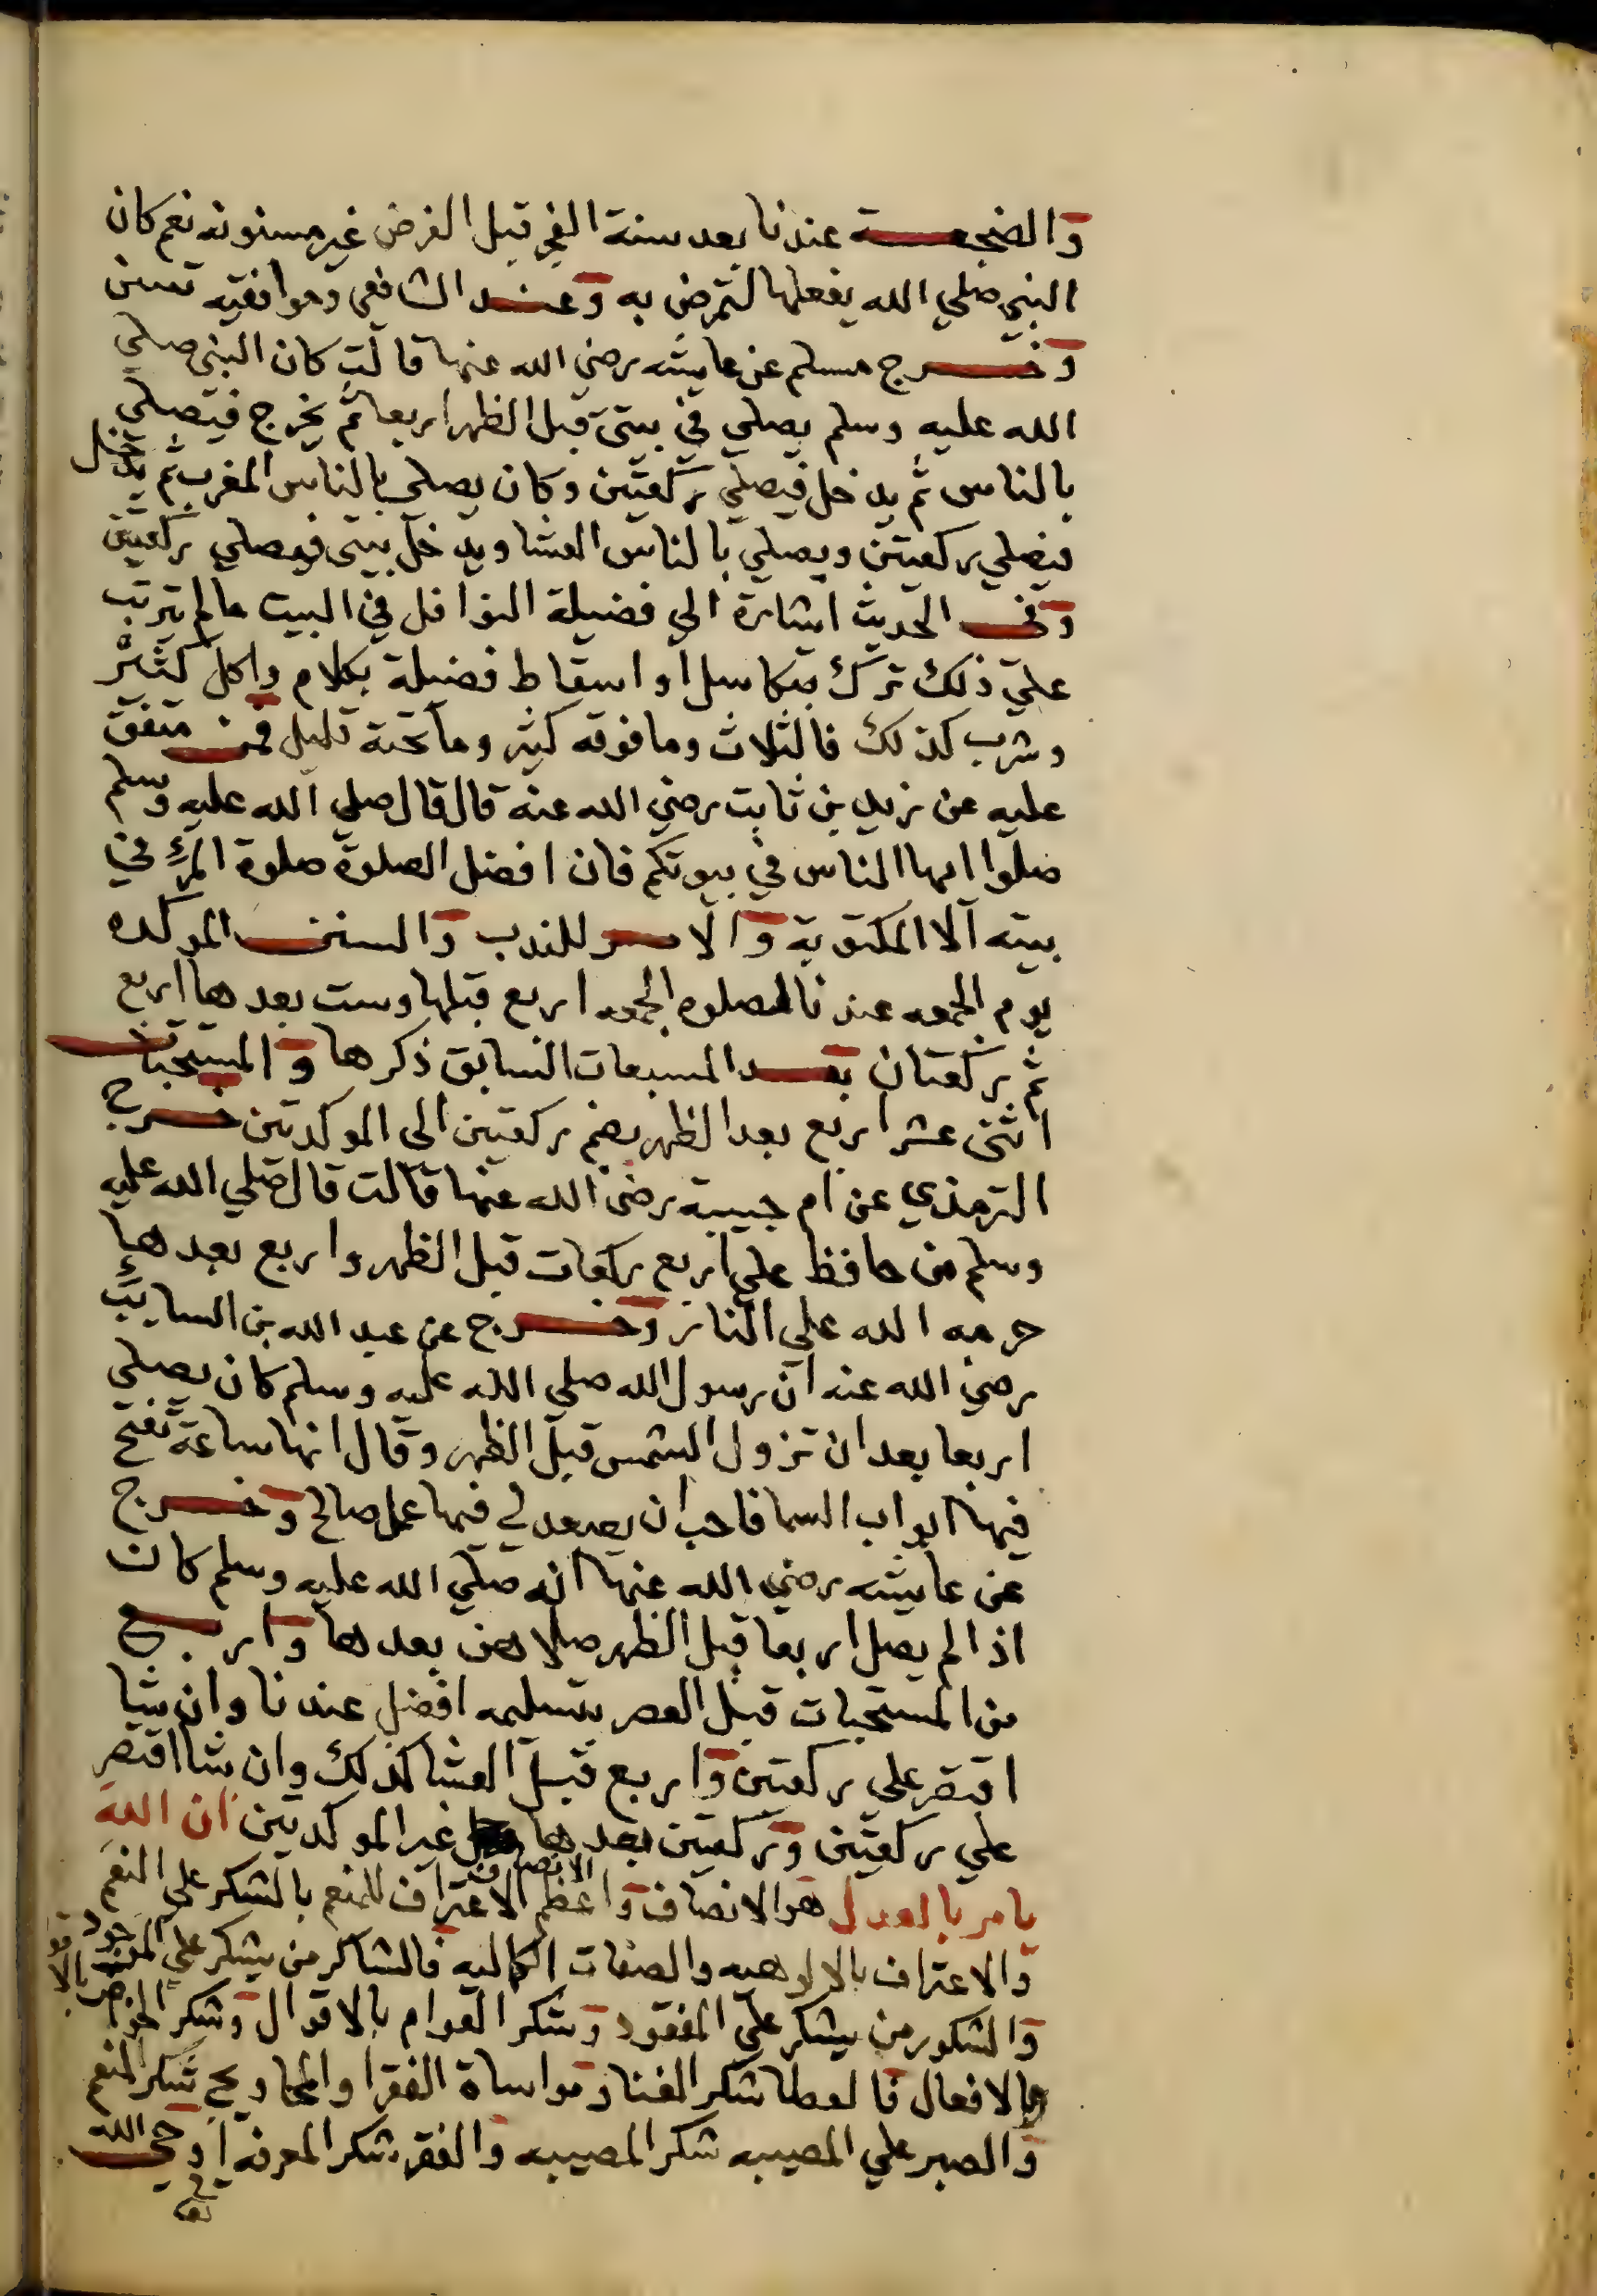 والضجعـــة عندنا بعد سنة الفجر قبل الفرض غير مسنونه نعم كان
النبي صلي الله يفعلها لتمرض به وعنــد الشافعي وموافقيه تسن
وخــرج مسلم عن عايشه رضي الله عنها قالت كان النبي صلي
الله عليه وسلم يصلي في بيتي قبل الظهر اربعا ثم يخرج فيصلي
بالناس ثم يدخل فيصلي ركعتين وكان يصلي بالناس المغرب ثم يدخل
فيصلي ركعتين ويصلي بالناس العشا ويدخل بيتي فيصلي ركعتين
وفي الحديث اشارة الي فضيلة النوافل في البيت مالم يترتب
علي ذلك ترك بتكاسل او اسقاط فضيلة بكلام واكل كثير
وشرب كذلك فالثلاث ومافوقه كثير وماتحته قليل فمن متفق
عليه عن زيد بن ثابت رضي الله عنه قال قال صلي الله عليه وسلم
صلوا ايها الناس في بيوتكم فان افضل الصلوة صلوة المرء في
بيته الا المكتوبة والامــر للندب والسنن الموكده
يوم الجمعه عندنا لصلوه الجمعه اربع قبلها وست بعدها اربع
ثم ركعتان بعــد المسبعات السابق ذكرها والمستحبات
اثني عشر اربع بعد الظهر بضم ركعتين الى الموكدتين خــرج
الترمذي عن ام حبيبة رضي الله عنها قالت قال صلي الله عليه
وسلم من حافظ علي اربع ركعات قبل الظهر واربع بعدها
حرمه الله علي النار وخــرج عن عبد الله بن السايب
رضي الله عنه ان رسول الله صلي الله عليه وسلم كان يصلي
اربعا بعد ان تزول الشمس قبل الظهر وقال انها ساعة تفتح
فيها ابواب السما فاحب ان يصعد لي فيها عمل صالح وخــرج
عن عايشه رضي الله عنها انه صلي الله عليه وسلم كان
اذا لم يصل اربعا قبل الظهر صلاهن بعدها واربــع
من المستحبات قبل العصر بتسليمه افضل عندنا وان شا
اقتصر علي ركعتين واربع قبل العشا كذلك وان شا اقتصر
علي ركعتين وركعتين بعدها غير الموكدتين ان الله
يامر بالعدل هو الانصاف واعظم الانصاف الاعتراف للمنعم بالشكر علي النعم
والاعتراف بالالوهيه والصفات الكماليه فالشاكر من يشكر علي الموجود
والشكور من يشكر علي المفقود وشكر العوام بالاقوال وشكر الخواص بالا
بالافعال فالعطا شكر الغنا ومواساة الفقرا والمحاويج شكر المنعم
والصبر علي المصيبه شكر المصيبه والفقر شكر المعرفه اوحي الله